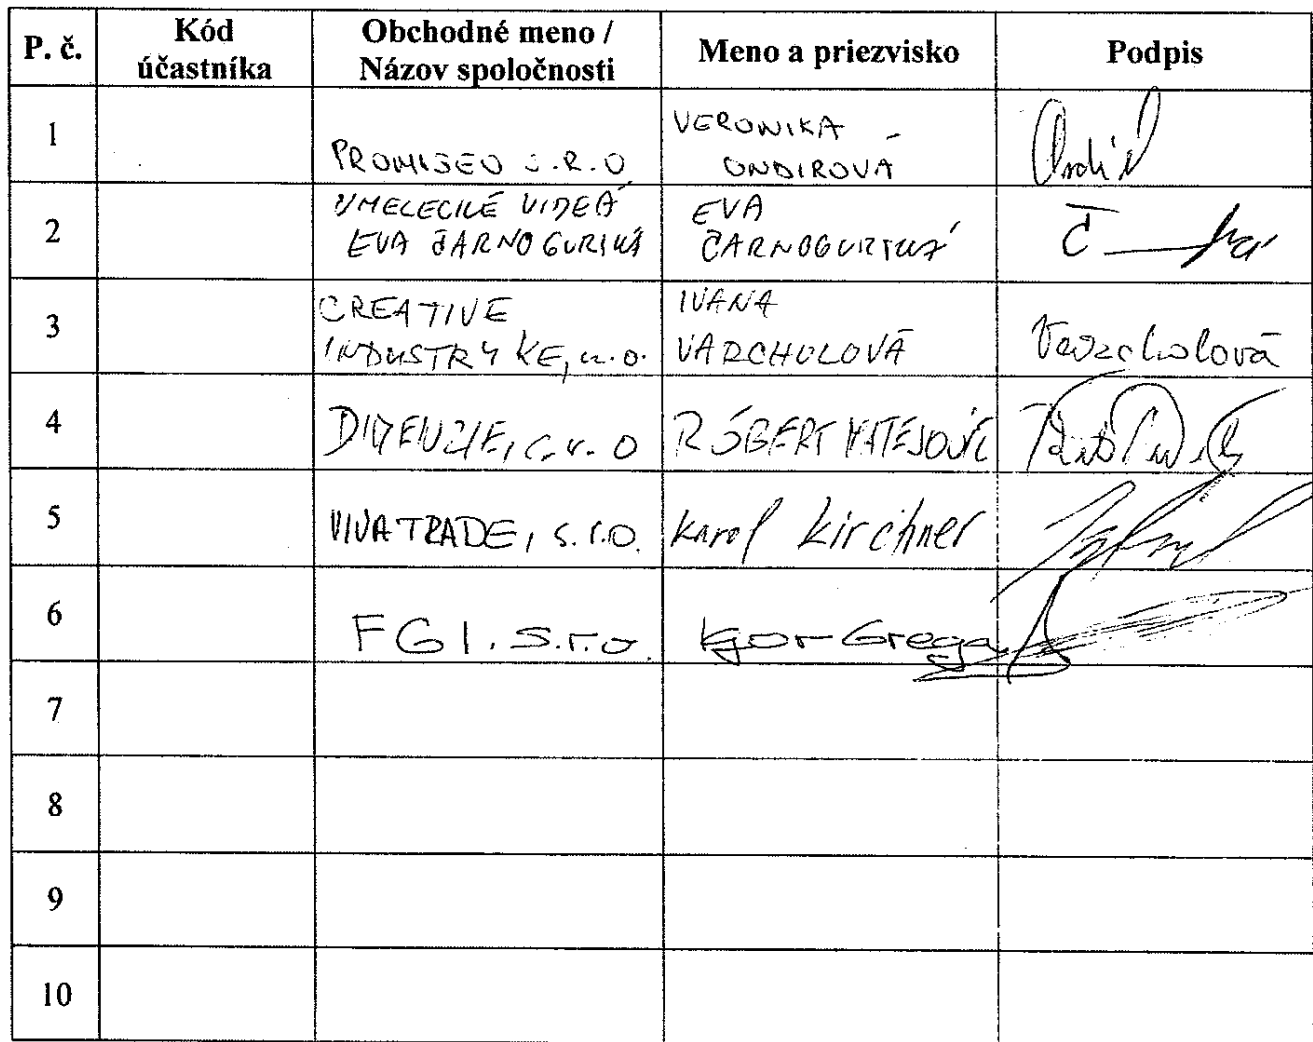 P. č.
Kód
účastníka
Obchodné meno /
Názov spoločnosti
Meno a priezvisko
Podpis
1
PROMISEO S.R.O
VERONIKA
ONDIROVÁ
2
UMELECKÉ VIDEÁ
EVA ČARNOGURSKÁ
EVA
ČARNOGURSKÁ
3
CREATIVE
INDUSTRY KE, n.o.
IVANA
VARCHOLOVÁ
Varcholová
4
s.r.o
RÓBERT MATEJOVIČ
5
VIVA TRADE, s.r.o.
Karol Kirchner
6
FGI. s.r.o.
Igor Grega
7
8
9
10